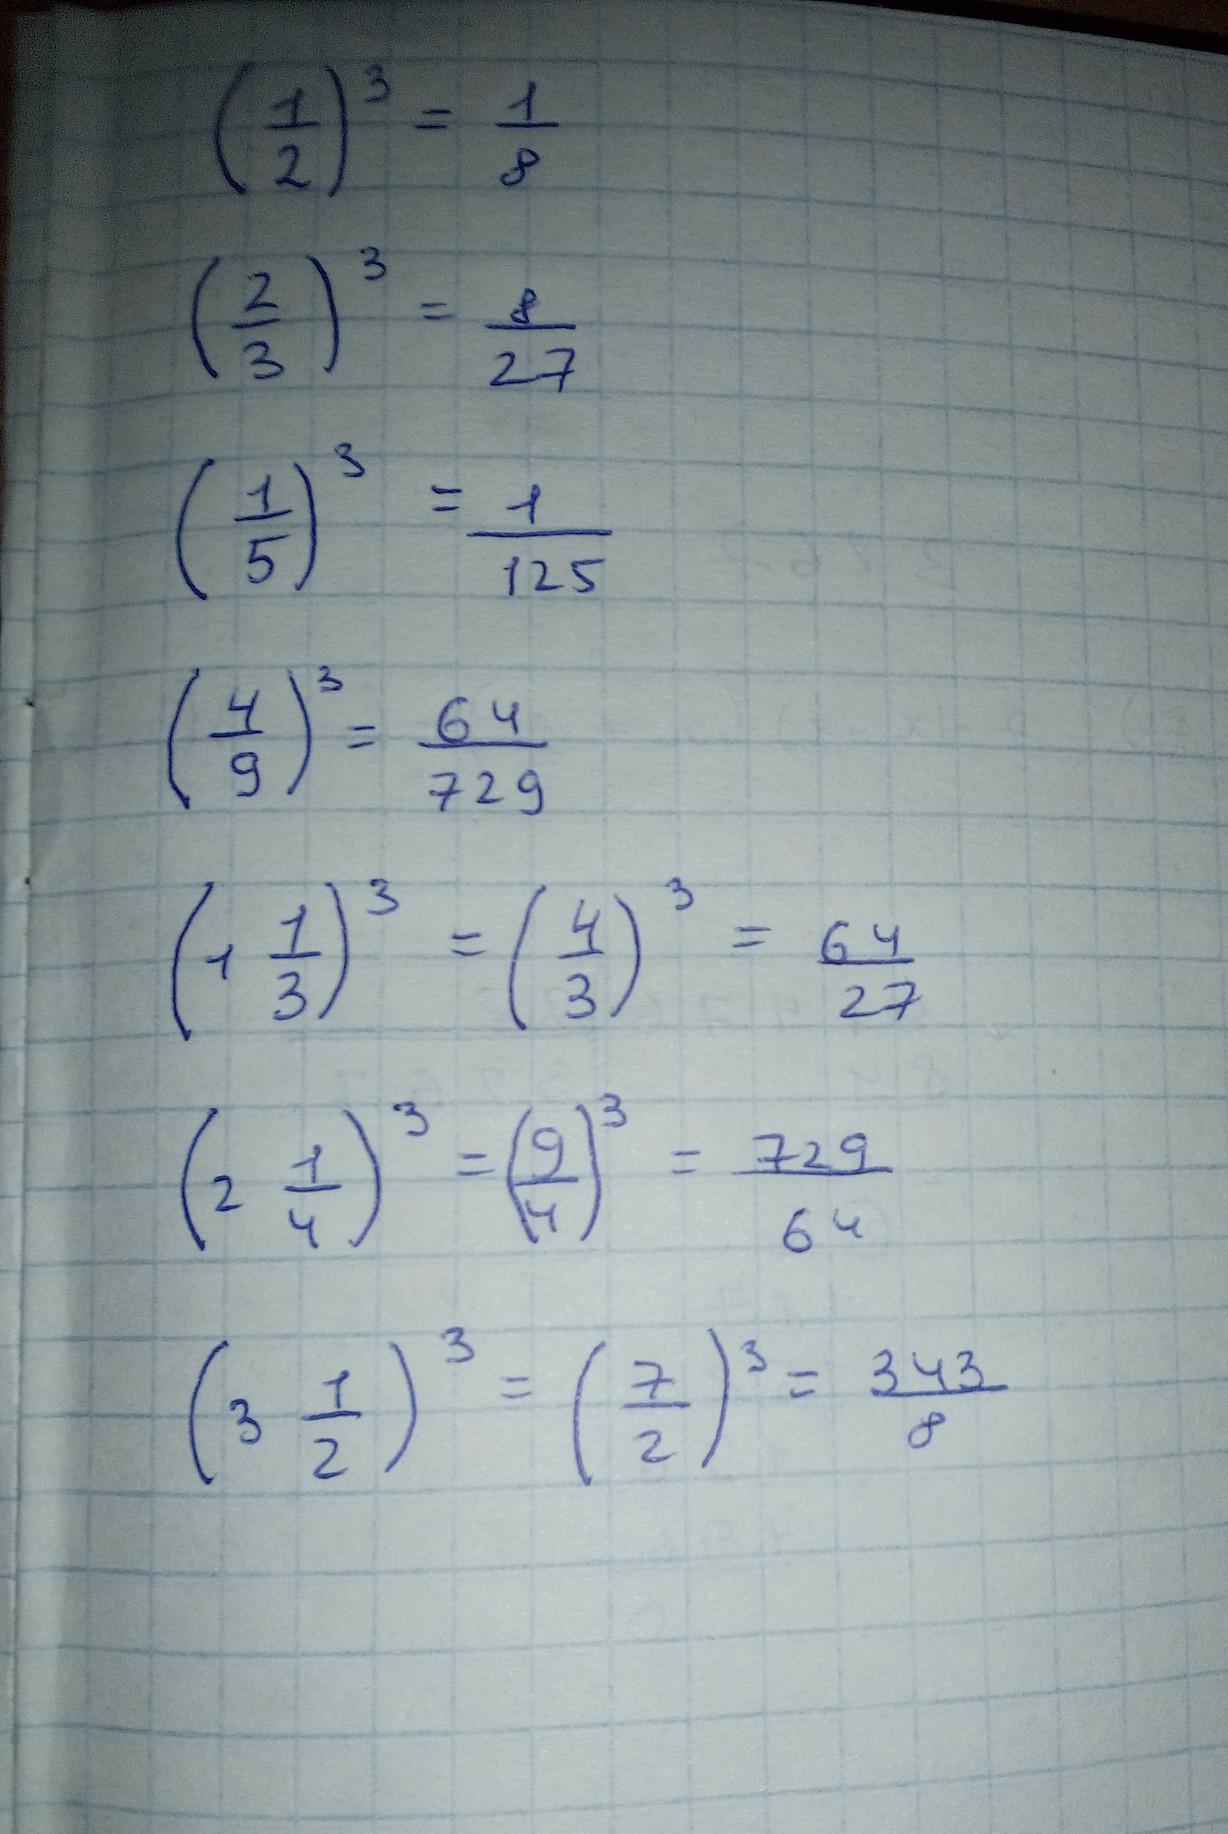 (1/2)³ = 1/8
(2/3)³ = 8/27
(1/5)³ = 1/125
(4/9)³ = 64/729
(1 1/3)³ = (4/3)³ = 64/27
(2 1/4)³ = (9/4)³ = 729/64
(3 1/2)³ = (7/2)³ = 343/8